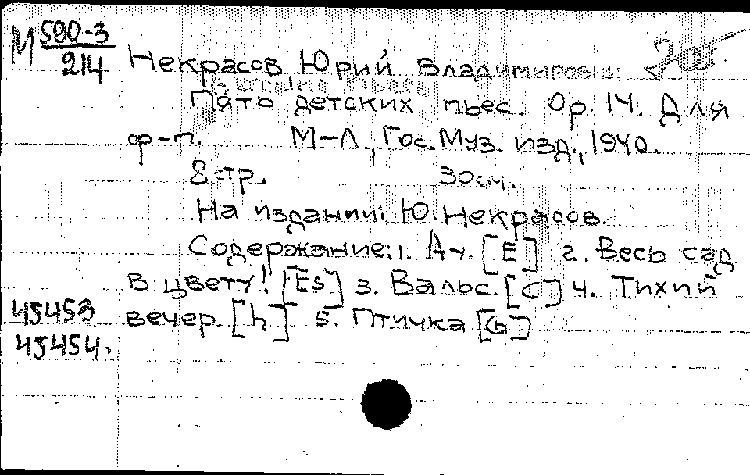 М 590-3
214
Некрасов Юрий Владимирович
Пять детских пьес. Ор. 14. Для
ф-п. М-Л, Гос. Муз. изд., 1940.
8 стр. 30 см.
На издании: Ю. Некрасов.
Содержание: 1. [E] 2. Весь сад
в цвету! [Es] 3. Вальс. [C] 4. Тихий
вечер. [h] 5. Птичка [G]
45453
45454.